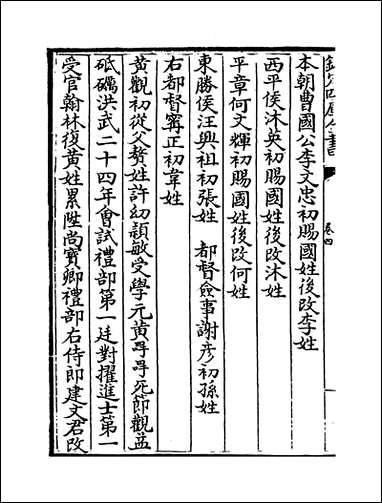 欽定四庫全書
卷四
本朝曹國公李文忠初賜國姓後改李姓
西平侯沐英初賜國姓後改沐姓
平章何文輝初賜國姓後改何姓
東勝侯汪興祖初張姓　都督僉事謝彦初孫姓
右都督甯正初韋姓
黄觀初從父贅姓許幼頴敏受學元黄冔冔死節觀益
砥礪洪武二十四年會試禮部第一廷對擢進士第一
受官翰林復黄姓累陞尚寶卿禮部右侍郎建文君改